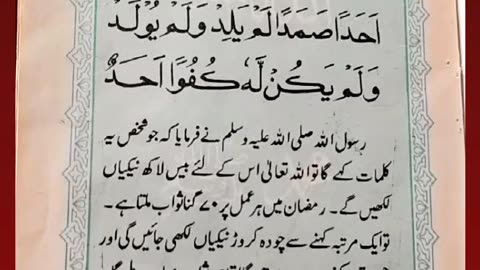 اَحَدًا صَمَدًا لَمْ يَلِدْ وَلَمْ يُوْلَدْ
وَلَمْ يَكُنْ لَّهٗ كُفُوًا اَحَدٌ
رسول اللہ صلی اللہ علیہ وسلم نے فرمایا کہ جو شخص یہ
کلمات کہے گا تو اللہ تعالیٰ اس کے لئے بیس لاکھ نیکیاں
لکھیں گے۔ رمضان میں ہر عمل پر ۷۰ گنا ثواب ملتا ہے۔
تو ایک مرتبہ کہنے سے چودہ کروڑ نیکیاں لکھی جائیں گی اور